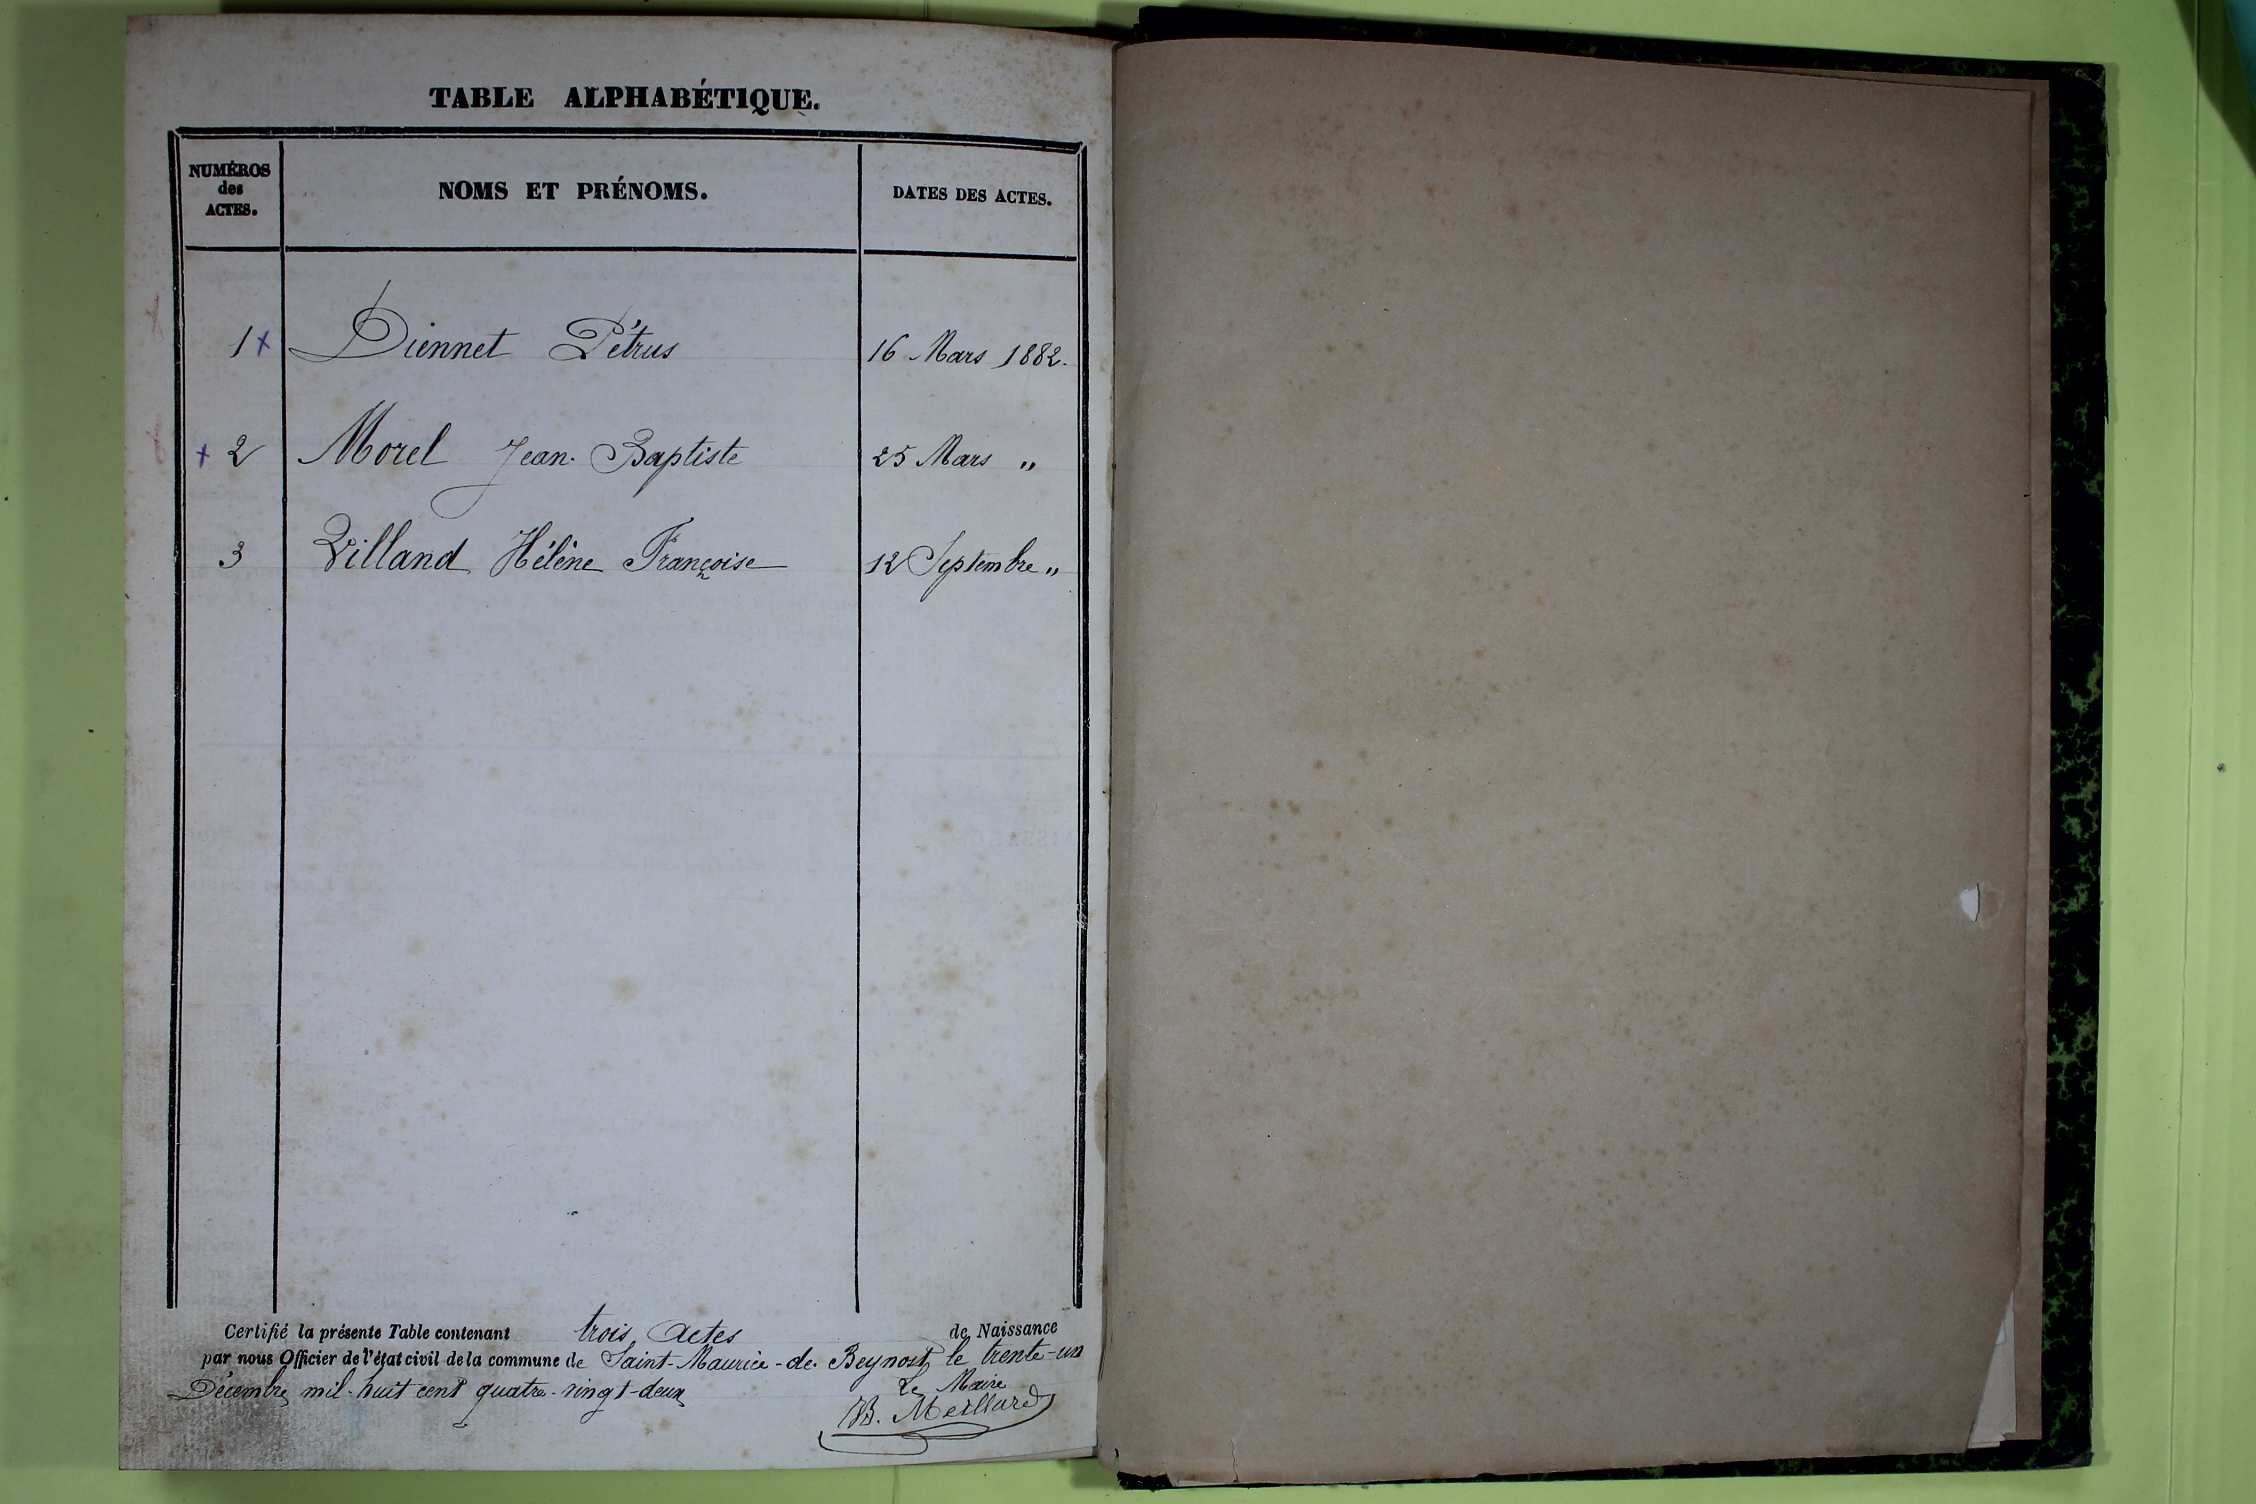 TABLE ALPHABÉTIQUE.
NUMÉROS
des
ACTES.
NOMS ET PRÉNOMS.
DATES DES ACTES.
1 x Diennet Pétrus 16 Mars 1882.
x 2 Morel Jean-Baptiste 25 Mars "
3 Villand Hélène Françoise 12 Septembre "
Certifié la présente Table contenant trois Actes de Naissance
par nous Officier de l'état civil de la commune de Saint-Maurice-de-Beynost le trente-un
Décembre mil-huit cent quatre-vingt-deux
Le Maire
B. Meillard